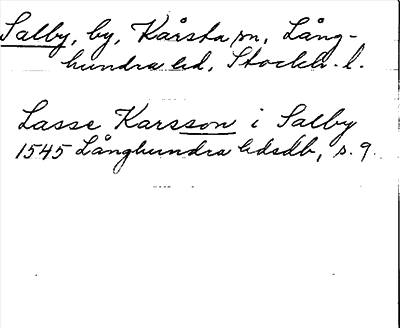 Salby, by, Kårsta sn, Lång-
hundra hd, Stockh. l.
Lasse Karsson i Salby
1545 Långhundra hdsdb, s. 9.